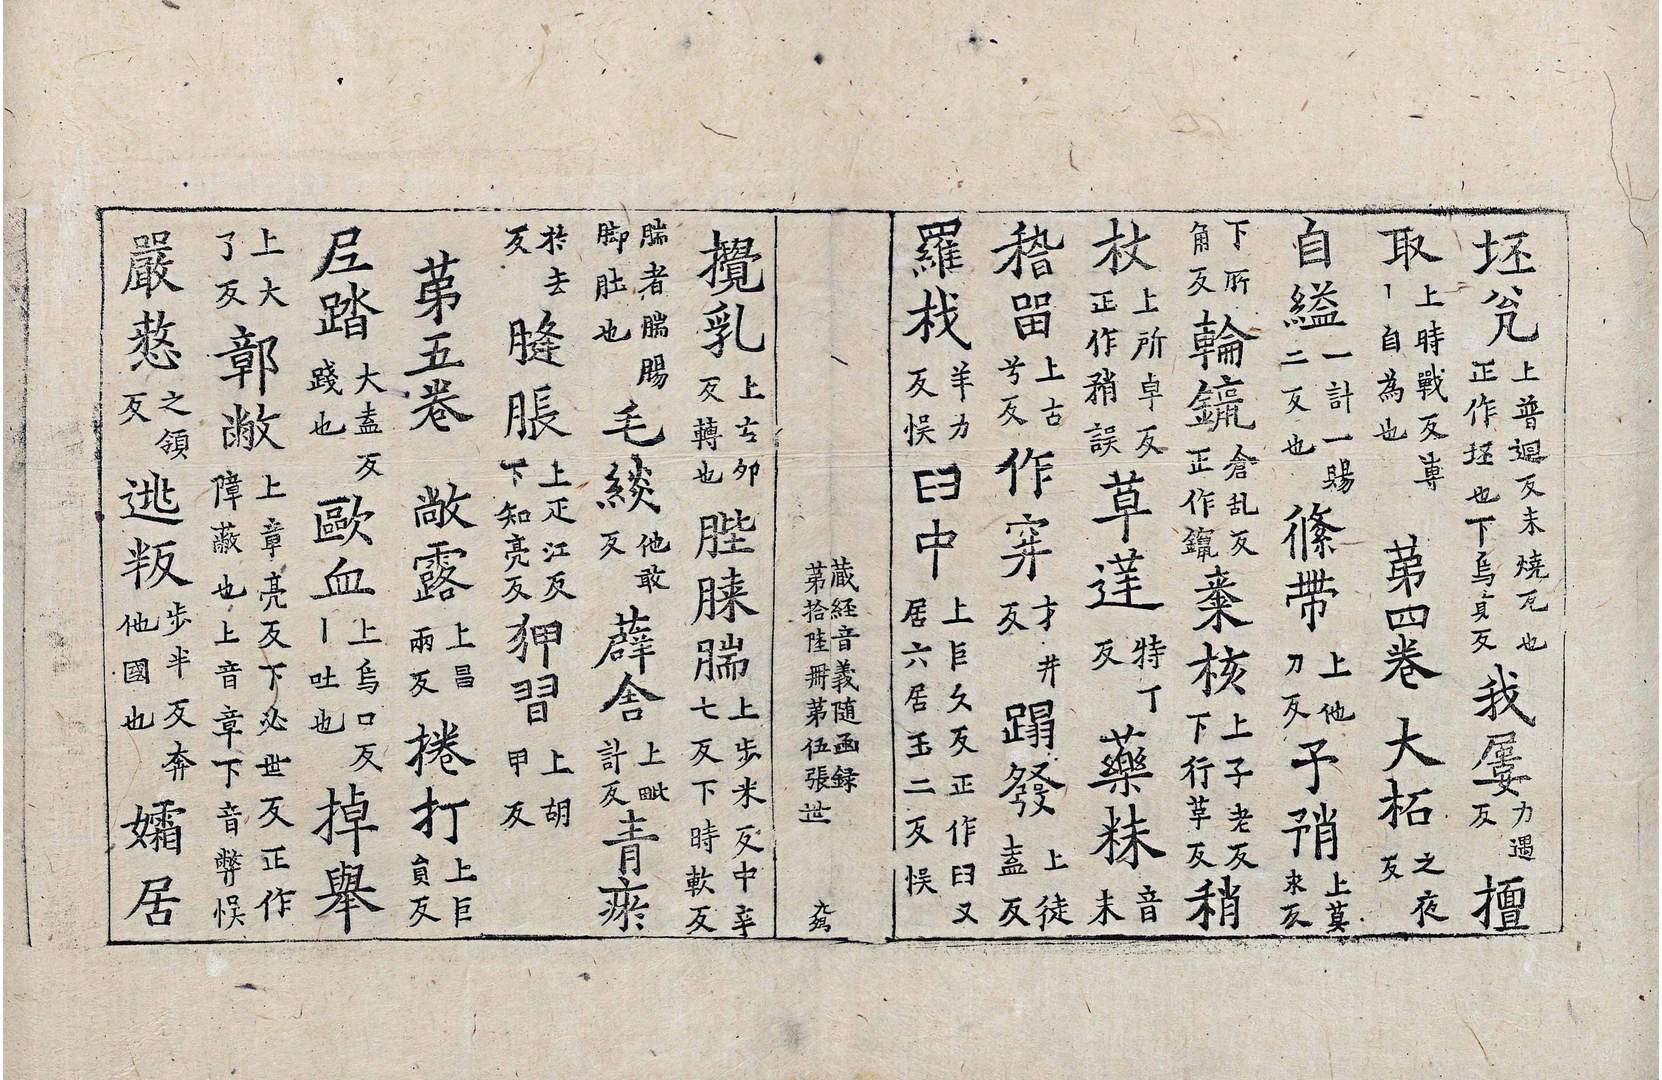 坯瓮上普迴反未燒瓦也正作坯也下烏貢反我屢力遇反擅
取上時戰反專丨自為也第四卷大柘之夜反
自縊一計一賜二反也絛帶上他刀反予矟上莫求反
下所角反輪鑹倉乱反正作鑹棗核上子老反下行革反稍
杖上所卓反正作矟誤草蓬特丁反藥秣音末
稽留上古兮反作穽才井反蹋發上徒盍反
羅杙羊力反悮臼中上巨久反正作臼又居六居玉二反悮
藏経音義随函録
第拾陸冊第伍張世
攪乳上古卯反轉也䏶腖腨上步米反中辛七反下時軟反
腨者腨腸脚肚也毛緂他敢反薜舍上毗計反青瘀
於去反䏺脹上疋江反下知亮反狎習上胡甲反
苐五卷敞露上昌兩反捲打上巨員反
𡰱踏大盍反踐也歐血上烏口反丨吐也掉舉
上大了反彰敝上章亮反下必世反正作障蔽也上音章下音弊悮
嚴憗之領反逃叛步半反奔他國也孀居